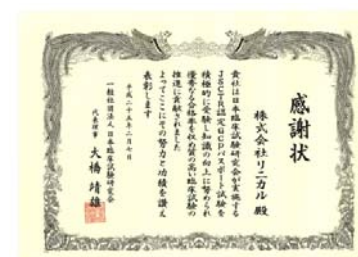 感謝状
株式会社リニカル 殿
貴社は日本臨床試験研究会が実施する
JSCTR認定GCPパスポート試験を
積極的に受験し知識の向上に努められ
優秀なる合格率を収め質の高い臨床試験の
推進に貢献されました
よってここにその努力と功績を讃え
表彰します
平成二十五年二月七日
一般社団法人 日本臨床試験研究会
代表理事 大橋靖雄